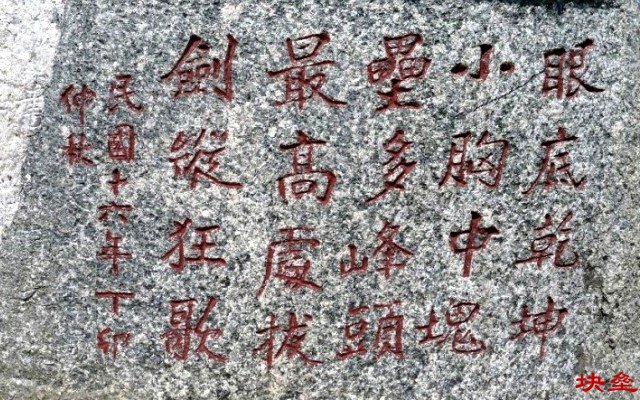 眼底乾坤
小胸中塊
壘多峰頭
最高處拔
劍縱狂歌
民國十六年丁卯
仲秋
块垒